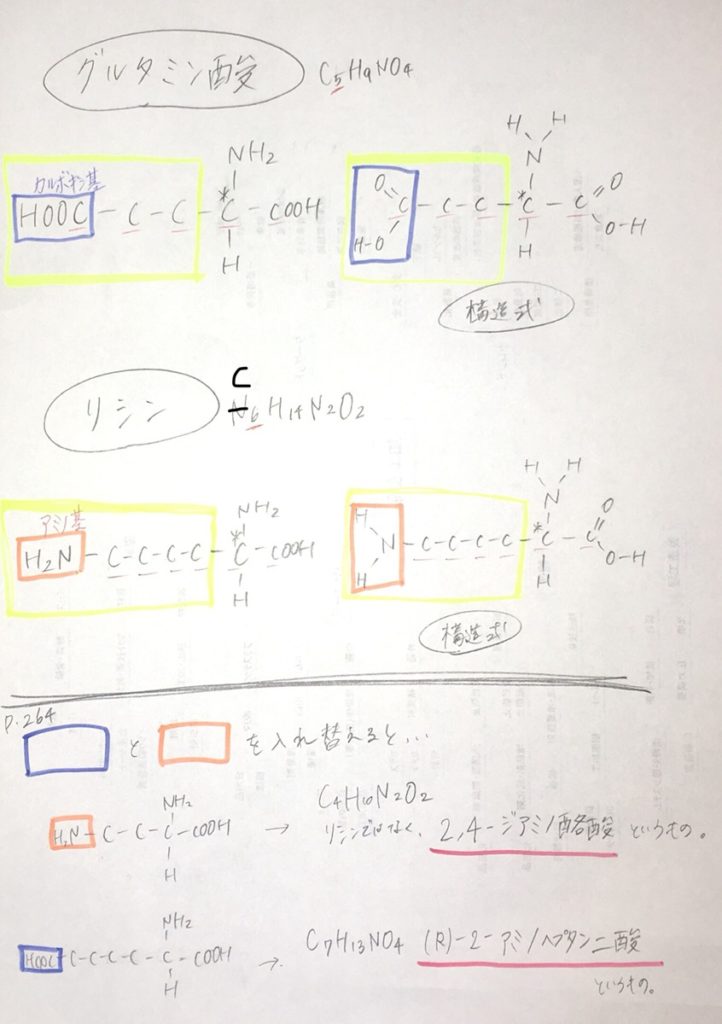 グルタミン酸 C5H9NO4
カルボキシ基
NH2
HOOC - C - C - C* - COOH
H
H H
N
O=C - C - C - C* - C=O
H-O O-H
H
構造式
リシン
C
N6H14N2O2
アミノ基
NH2
H2N - C - C - C - C - C* - COOH
H
H H
N
H
N - C - C - C - C - C* - C=O
H O-H
H
構造式
P.264
と を入れ替えると…
NH2
H2N - C - C - C - COOH → C4H10N2O2
H
リシンではなく、2,4-ジアミノ酪酸というもの。
NH2
HOOC - C - C - C - C - C - COOH → C7H13NO4 (R)-2-アミノヘプタン二酸
H
というもの。